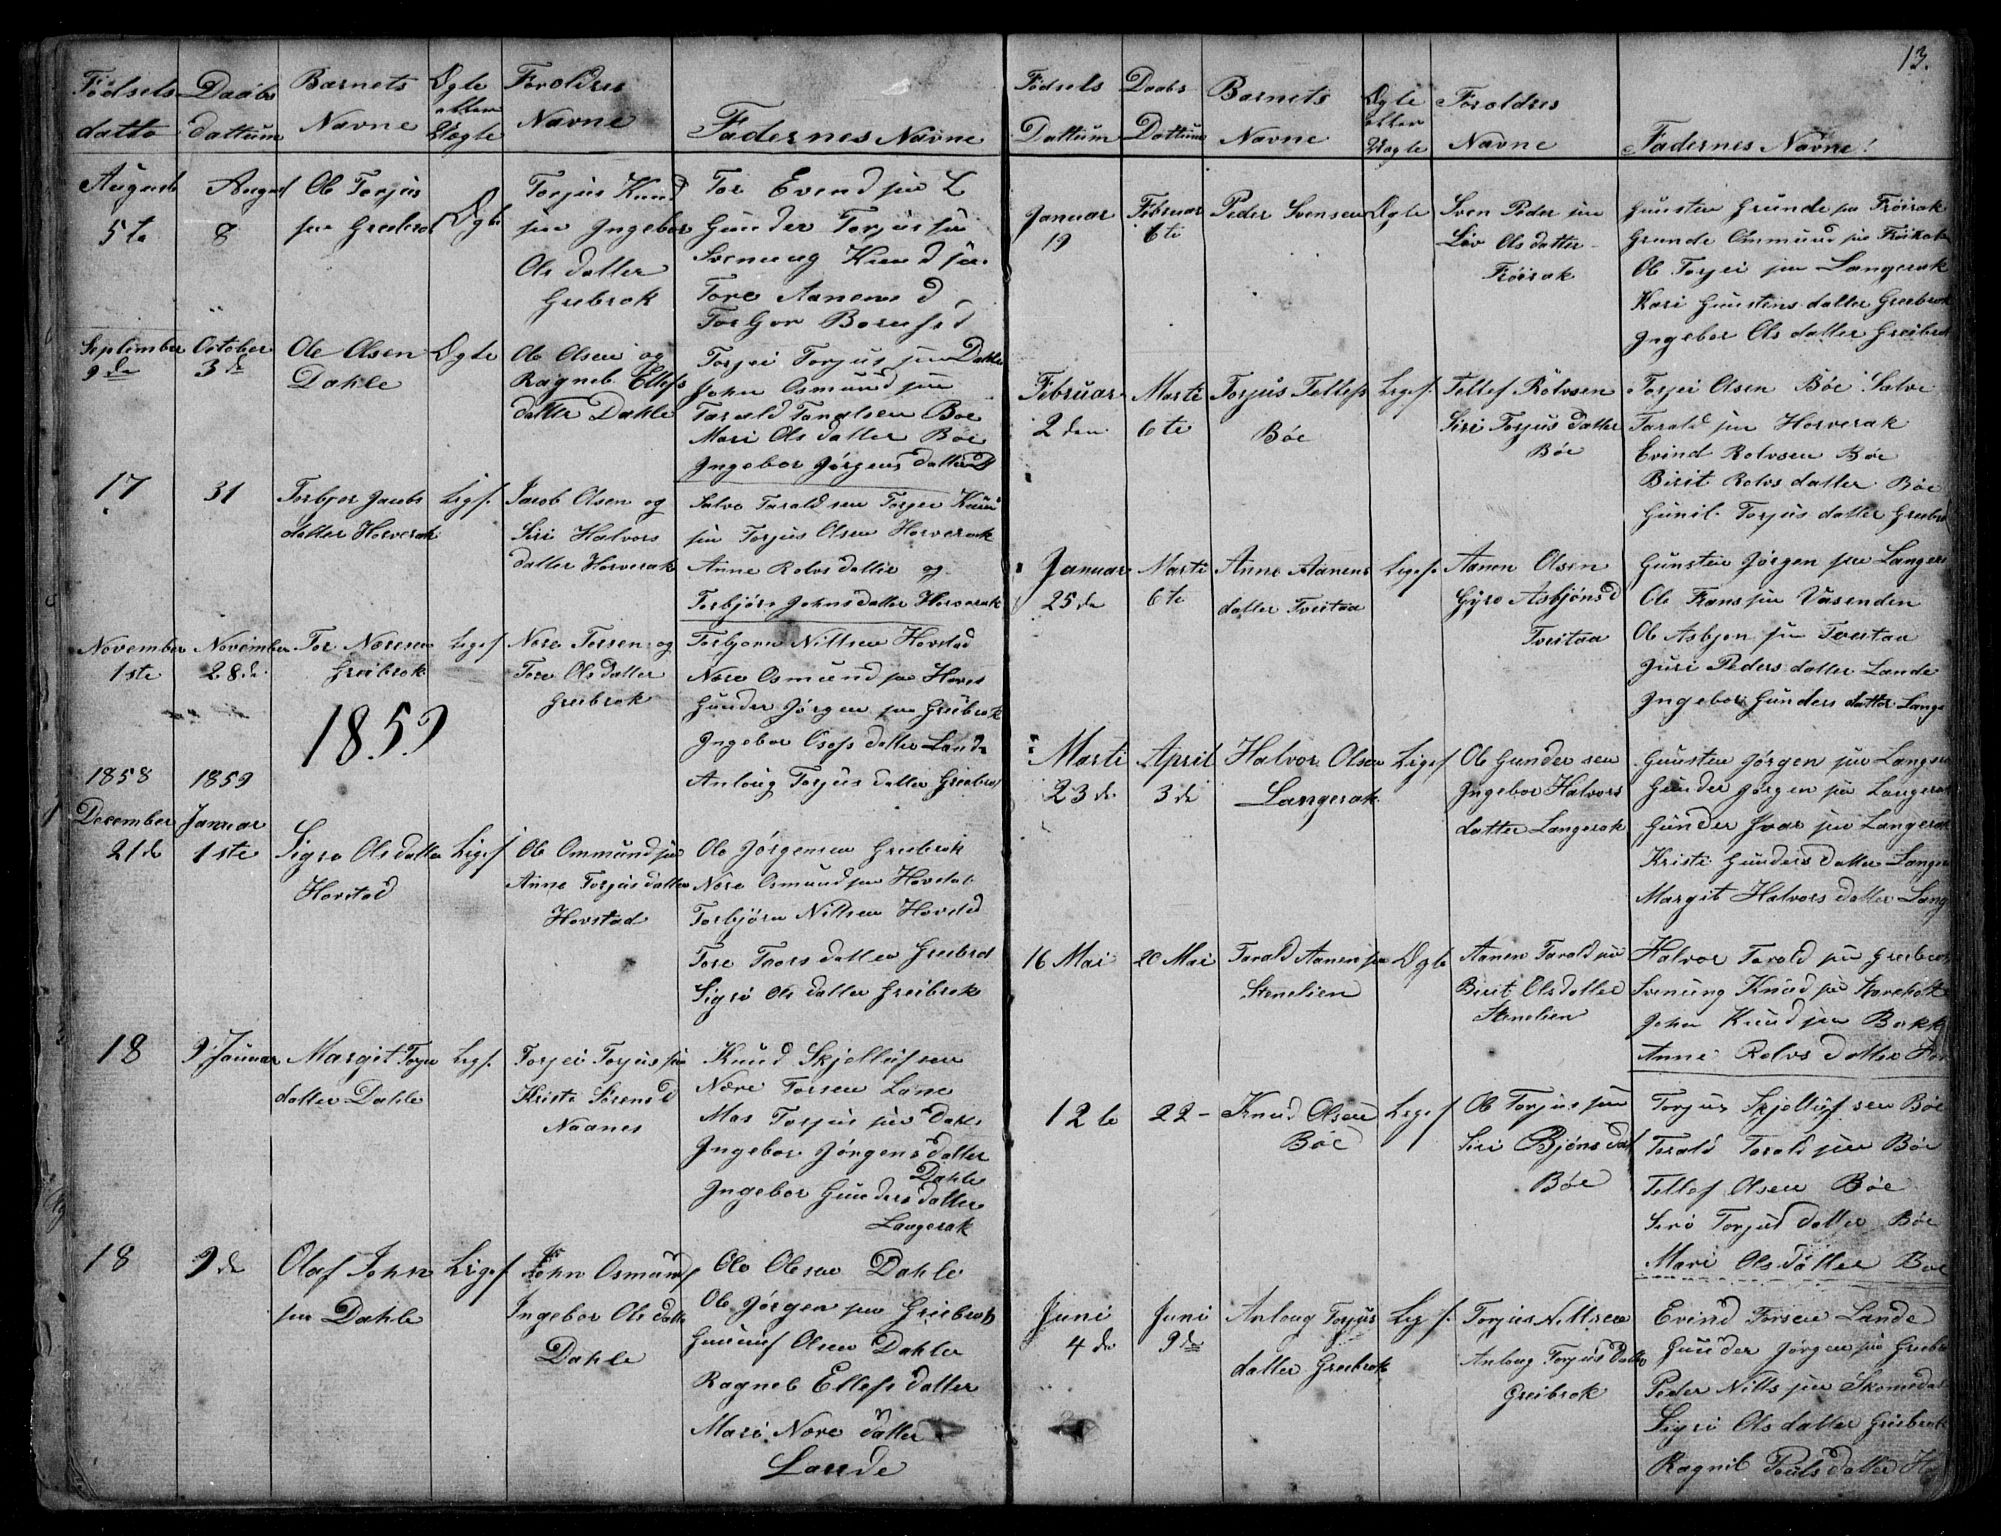 Födsels
datto
Daabs
dattum
Barnets
Navne
Ægte
eller
Uægte
Foroldres
Navne
Fadernes Navne
August
5te
August
8
Ole Torjus
sen Greibrok
Ægte
Torjus Knud
sen Ingebor
Ols datter
Greibrok
Tor Evend sen L
Gunder Torjus sen
Svenung Knud sen
Tore Aanens d
September
9de
October
3de
Ole Olsen
Dahle
Ægte
Ole Olsen og
Ragneb Ellefs
datter Dahle
Torjei Torjus sen Dahle
John Osmund sen
Tarald Taralsen Bøe
Mari Ols datter Bøe
Ingebor Jørgens datter D
17
31
Torbjør Jacobs
datter Horverak
Ligef.
Jacob Olsen og
Siri Halvors
datter Horverak
Salve Taraldsen Torger Knud
sen Torjus Olsen Horverak
Anne Rolvs datter og
Torbjørn Johns datter Horverak
November
1ste
November
28de
Tor Noresen
Greibrok
Ligef
Nore Torsen og
Tore Ols datter
Greibrok
Torbjorn Nillsen Hovstad
Nore Osmund sen Hovs
Gunder Jørgen sen Greibrok
Ingebor Osefs datter Lande
Anloug Torjus datter Greibrok
1859
1858
December
21de
1859
Januar
1ste
Sigro Olsdatter
Hovstad
Ligef
Ole Ommund sen
Anne Torjus datter
Hovstad
Ole Jørgensen Greibrok
Nore Osmund sen Hovstad
Torbjörn Nillsen Hovstad
Tore Toors datter Greibrok
Sigrø Ols datter Greibrok
18
9 Januar
Margit Torje
datter Dahle
Ligf.
Torjei Torjus sen
Kristi Sørens d
Naanes
Knud Skjellufsen
Nore Torsen Lane
Mas Torjus sen Dahle
Ingebor Jørgens datter
Dahle
Ingebor Gunders datter
Langerak
18
9de
Olaf John
sen Dahle
Ligef
John Osmund
Ingebor Ols datte
Dahle
Ole Olesen Dahle
Ole Jørgen sen Greibrok
Gunuf Olsen Dahler
Ragneb Ellefs datter
Mari Nore datter
Lande
13.
Fødsels
Dattum
Daabs
Dattum
Barnets
Navne
Ægte
eller
Uægte
Foroldres
Navne
Fadernes Navne!
Januar
19
Februar
6te
Peder Svensen
Ægte
Sven Peder sen
Liv Ols datter
Frøirak
Gunsten Grunde sen Frøirak
Grunde Ommund sen Frøirak
Ole Torjei sen Langerak
Kari Gunstens datter Greibrok
Ingebor Ols datter Greibrok
Februar
2den
Marti
6te
Torjus Tellefs
Bøe
Ligef.
Tellef Rolvsen
Siri Torjus datter
Bøe
Torjei Olsen Bøe Salve
Tarald sen Horverak
Evind Rolvsen Bøe
Birit Rolvs datter Bøe
Gunil Torjus datter Greibrok
Januar
25de
Marti
6te
Anne Aanens
datter Tveitaa
Ligef.
Aanen Olsen
Gyro Asbjöns d
Tveitaa
Gunsten Jørgen sen Langer
Ole Frans sen Vasenden
Ole Asbjen sen Tveitaa
Juri Peders datter Lande
Ingebor Gunders datter Lange
Marti
23de
April
3de
Halvor Olsen
Langerak
Ligef
Ole Gundersen
Ingebor Halvors
datter Langerak
Gunsten Jørgen sen Langer
Gunder Jørgen sen Langerak
Gunder Ivar sen Langerak
Kristi Gunders datter Langer
Margit Halvors datter Lang
16 Mai
20 Mai
Tarald Aanen sen
Stenelien
Ægte
Aanen Tarald sen
Birit Olsdatter
Stenelien
Halvor Tarald sen Greibrok
Svenung Knud sen Haveholt
John Knud sen Bakk
Anne Rolvs datter Hor
12te
22
Knud Olsen
Bøe
Ligef
Ole Torjus sen
Siri Bjöns dat
Bøe
Torjus Skjellufsen Bøe
Tarald Tarald sen Bøe
Tellef Olsen Bøe
Sirø Torjus datter Bøe
Mari Ols datter Bøe
Juni
4de
Juni
9de
Anloug Torjus
datter Greibrok
Ligf.
Torjus Nillsen
Anloug Torjus datter
Greibrok
Evind Torsen Lande
Gunder Jørgen sen Greibr
Peder Nills sen Skomedal
Sigri Ols datter Greibrok
Ragnil Pouls datter Ho